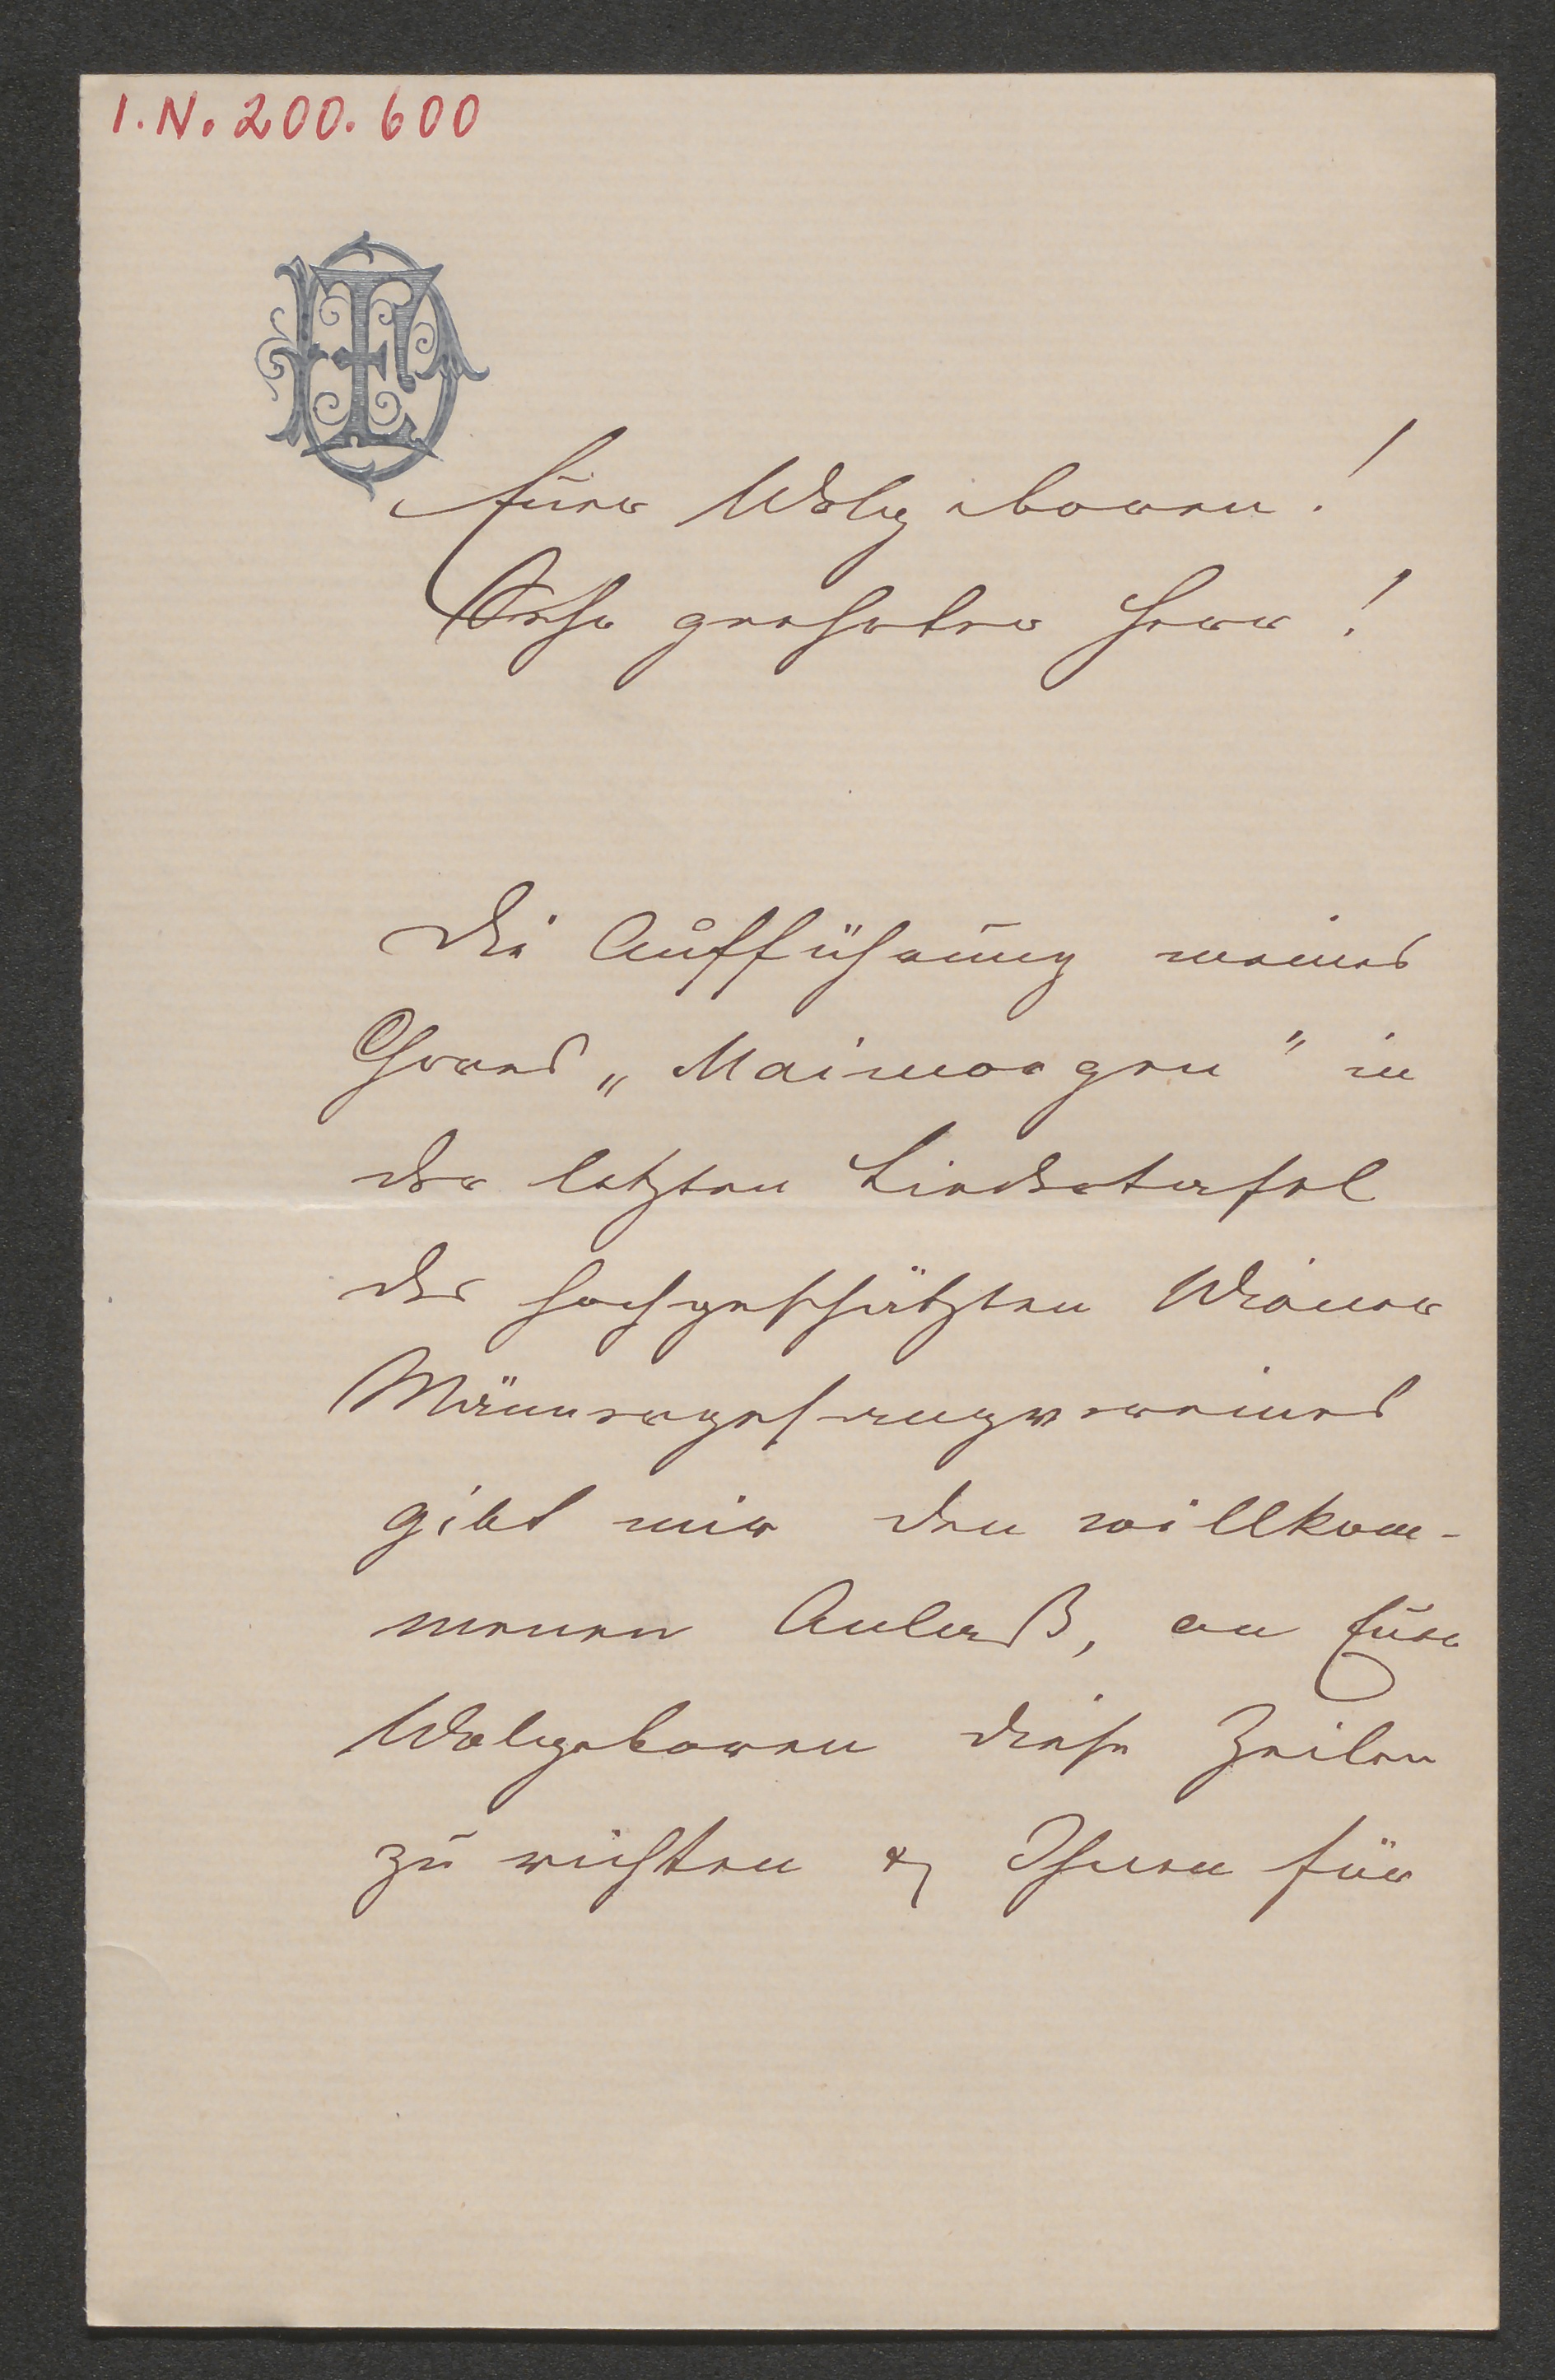 I.N. 200.600
Euer Wolgeboren!
Sehr geehrter Herr!
Die Aufführung meines
Chores „Maimorgen" in
der letzten Liedertafel
des hochgeschätzten Wiener
Männergesangvereines
gibt mir den willkom-
menen Anlaß, an Euer
Wolgeboren diese Zeilen
zu richten & Ihnen für